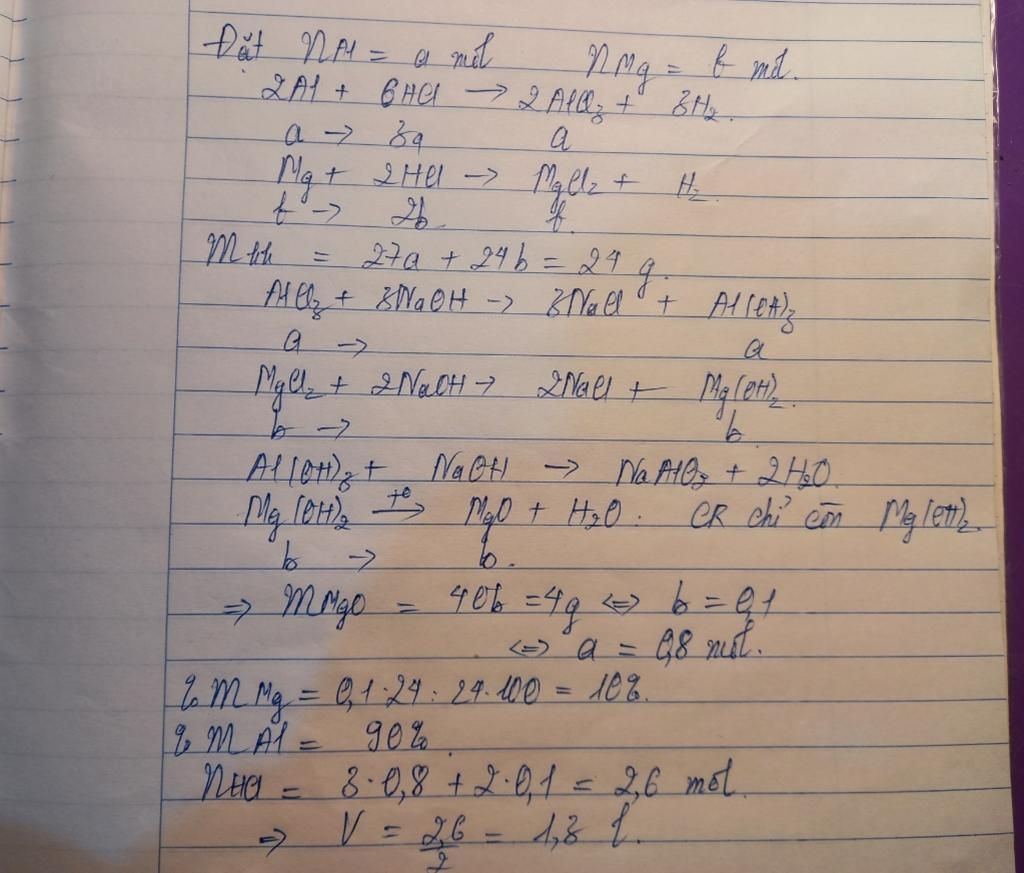 Đặt nAl = a mol nMg = b mol.
2Al + 6HCl → 2AlCl3 + 3H2.
a → 3a a
Mg + 2HCl → MgCl2 + H2.
b → 2b. b.
Mhh = 27a + 24b = 24 g.
AlCl3 + 3NaOH → 3NaCl + Al(OH)3
a → a
MgCl2 + 2NaOH → 2NaCl + Mg(OH)2.
b → b.
Al(OH)3 + NaOH → NaAlO3 + 2H2O.
Mg(OH)2 →(t°) MgO + H2O. CR chỉ còn Mg(OH)2.
b → b.
=> MMgO = 40b = 4g <=> b = 0,1
<=> a = 0,8 mol.
% MMg = 0,1.24 : 24.100 = 10%.
% MAl = 90%.
nHCl = 3.0,8 + 2.0,1 = 2,6 mol.
=> V = 2,6/2 = 1,3 l.